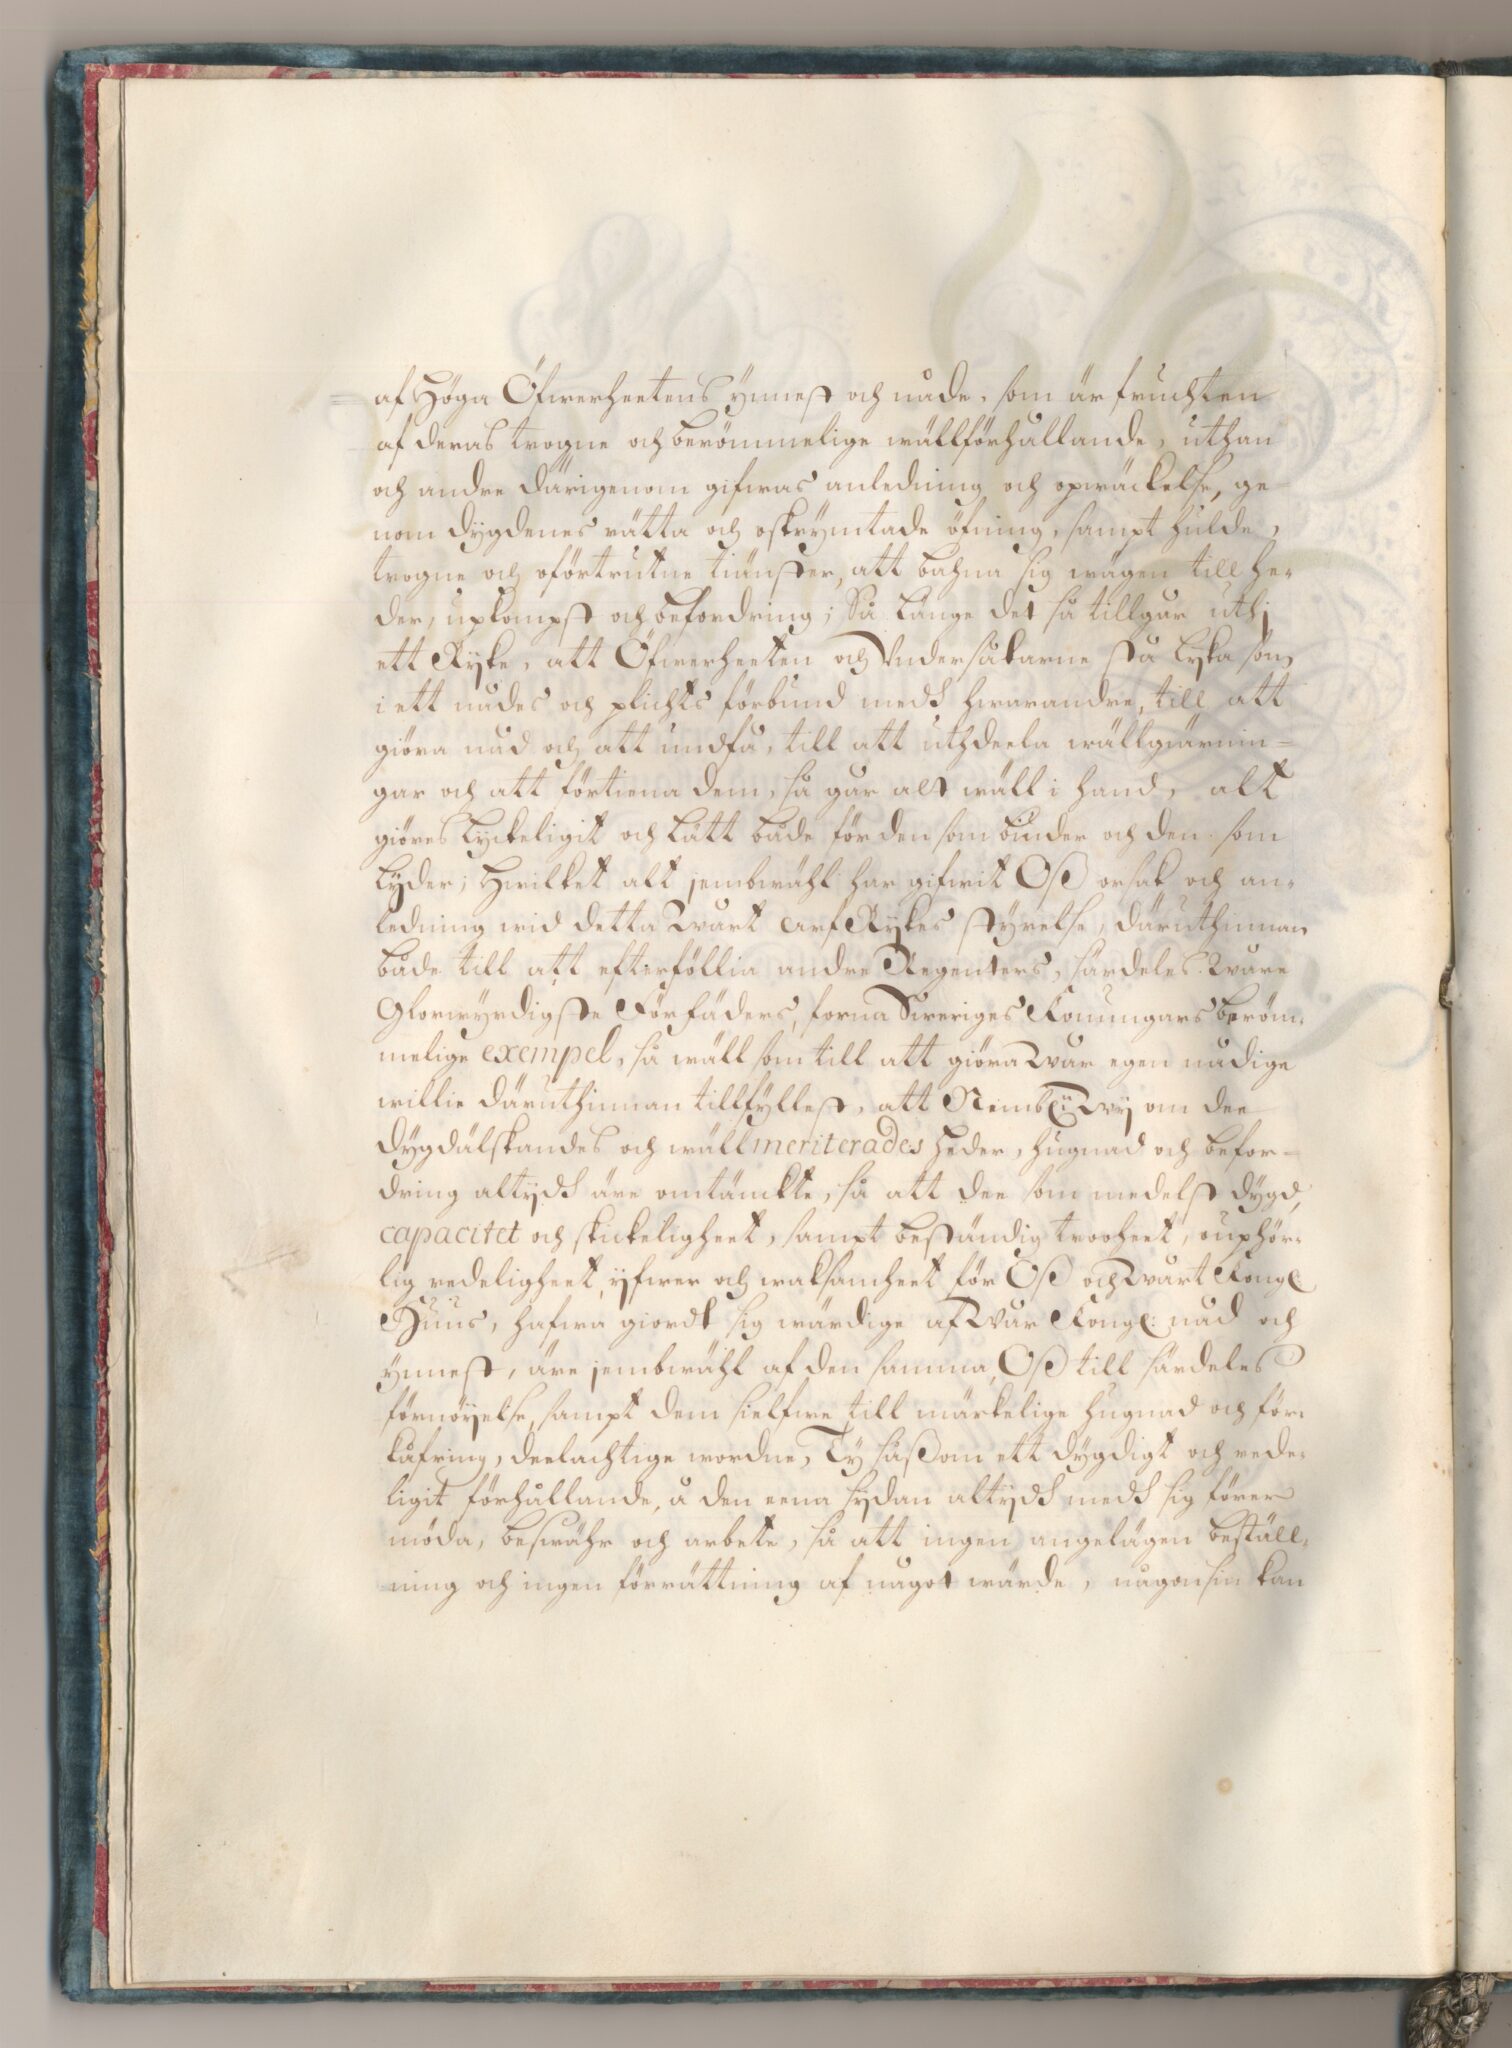 af Höga Öfwerheetens ynnest och nåde, som är fruchten
af deras trogne och berömmelige wällförhållande, uthan
och andre därigenom gifwas anledning och opwäckelse, ge
nom dygdenes rätta och oskrymtade öfning, sampt hulde,
trogne och oförtrutne tiänster, att bahna sig wägen till he-
der, upkompst och befordring; Så länge det så tillgår uthj
ett Ryke, att Öfwerheeten och Undersåtarne stå lyka som
i ett nådes och plichts förbund medh hwarandre, till att
giöra nåd och att undfå, till att uthdeela wällgiärnin=
gar och att förtiena dem, så går alt wäll i hand, alt
giöres lyckeligit och lätt både för den som biuder och den som
lyder; Hwilket alt jembwähl har gifwit Oß orsak och an-
ledning wid detta Wårt ArfRykes styrelse, däruthinnan
både till att efterföllia andre Regenters, särdeles Wåre
Glorwyrdigste Förfäders, forna Sweriges Konungars beröm-
melige exempel, så wäll som till att giöra Wår egen nådige
willie däruthinnan tillfyllest, att Nembl: Wij om dee
dygdälskandes och wällmeriterades heder, hugnad och befor=
dring altydh äre omtänckte, så att dee som medelst dygd,
capacitet och skickeligheet, sampt beständig trooheet, ouphör-
lig redeligheet, yfwer och waksamheet för Oß och Wårt Kongl
Huus, hafwa giordt sig wärdige af Wår Kongl: nåd och
ynnest, äre jembwähl af den samma, Oß till särdeles
förnöyelse, sampt dem sielfwe till märkelige hugnad och för-
kåfring, deelachtige wordne, Ty såßom ett dygdigt och rede-
ligit förhållande, å den eena sydan altydh medh sig förer
möda, beswähr och arbete, så att ingen angelägen beställ-
ning och ingen förrättning af något wärde, någonsin kan